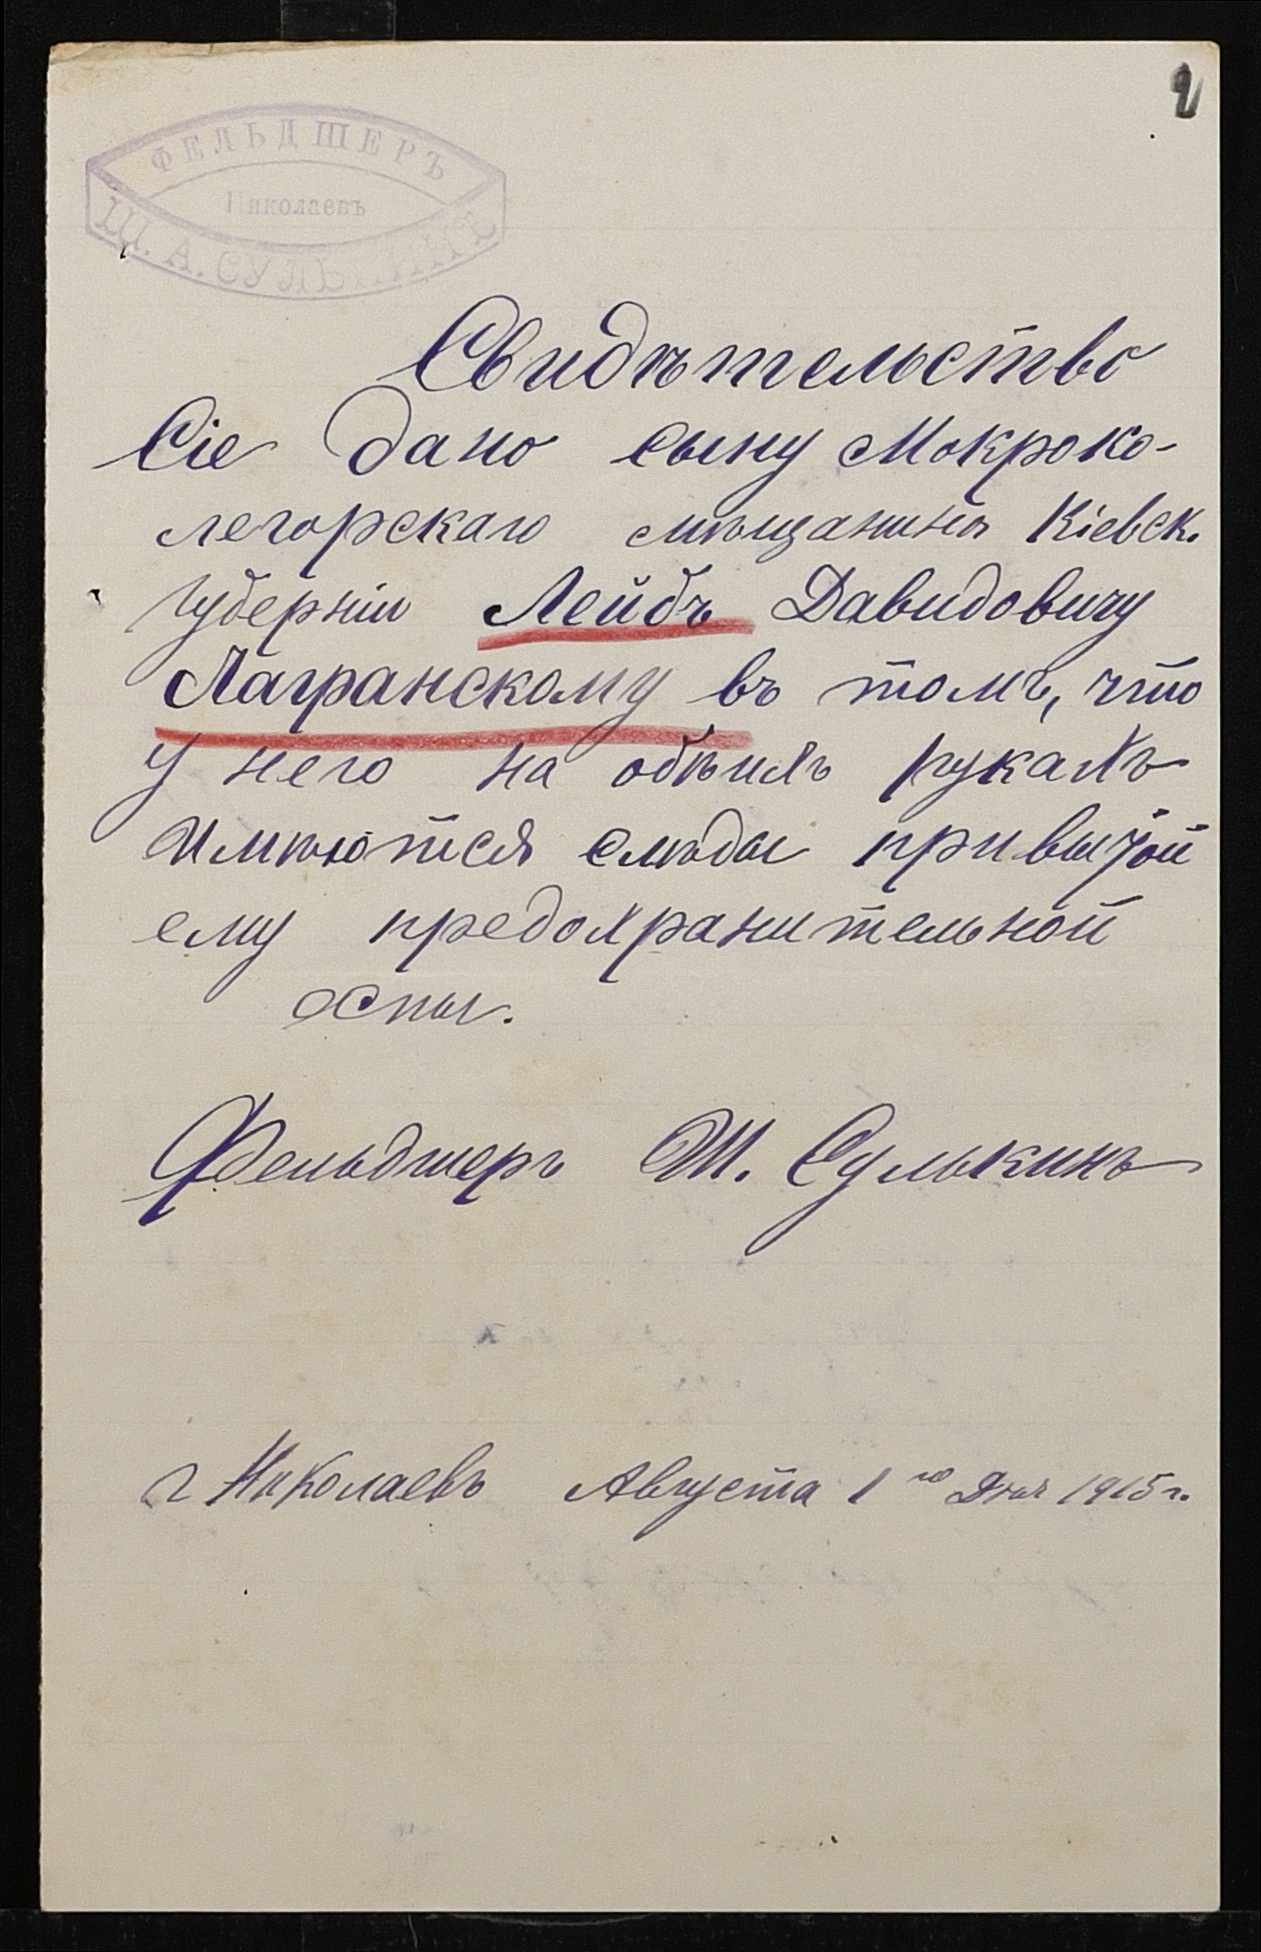 2
ФЕЛЬДШЕРЪ
Николаевъ
Ш. А. СУЛЬКИНЪ
Свидѣтельство
Сіе дано сыну Мокроко-
легорскаго мѣщанина Кіевск.
Губерніи Лейбѣ Давидовичу
Лагранскому въ томъ, что
у него на обѣихъ рукахъ
имѣются слѣды привитой
ему предохранительной
оспы.
Фельдшеръ Ш. Сулькинъ
г Николаевъ Августа 1 го Дня 1915 г.